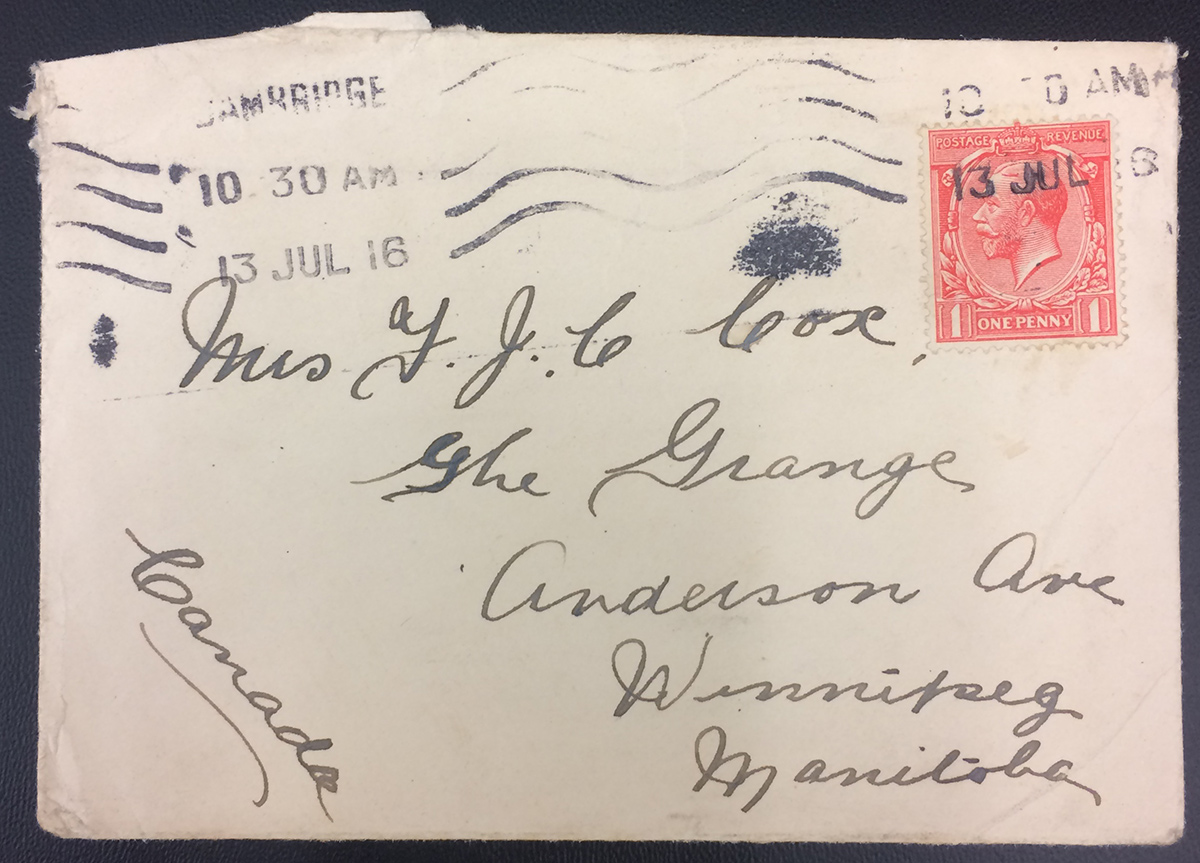 CAMBRIDGE
10 30 AM
13 JUL 16
10 0 AM
13 JUL 6
POSTAGE REVENUE
1 ONE PENNY 1
Mrs F. J. C Cox,
The Grange
Anderson Ave
Winnipeg
Manitoba
Canada